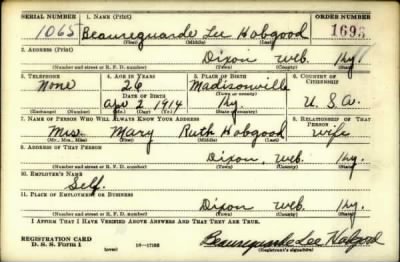 SERIAL NUMBER 1. NAME (Print) ORDER NUMBER
1065 Beaureguarde Lee Hobgood 1698
(First) (Middle) (Last)
2. ADDRESS (Print)
Dixon Web. Ky.
(Number and street or R. F. D. number) (Town) (County) (State)
3. TELEPHONE 4. AGE IN YEARS 5. PLACE OF BIRTH 6. COUNTRY OF CITIZENSHIP
None 26 Madisonville
DATE OF BIRTH (Town or county)
Apr 2 1914 Ky. U. S. A.
(Exchange) (Number) (Mo.) (Day) (Yr.) (State or country)
7. NAME OF PERSON WHO WILL ALWAYS KNOW YOUR ADDRESS 8. RELATIONSHIP OF THAT PERSON
Mrs. Mary Ruth Hobgood wife
(Mr., Mrs., Miss) (First) (Middle) (Last)
9. ADDRESS OF THAT PERSON
Dixon Web. Ky.
(Number and street or R. F. D. number) (Town) (County) (State)
10. EMPLOYER'S NAME
Self.
11. PLACE OF EMPLOYMENT OR BUSINESS
Dixon Web. Ky.
(Number and street or R. F. D. number) (Town) (County) (State)
I AFFIRM THAT I HAVE VERIFIED ABOVE ANSWERS AND THAT THEY ARE TRUE.
REGISTRATION CARD
D. S. S. FORM 1 (over) Beaureguarde Lee Hobgood
(Registrant's signature)